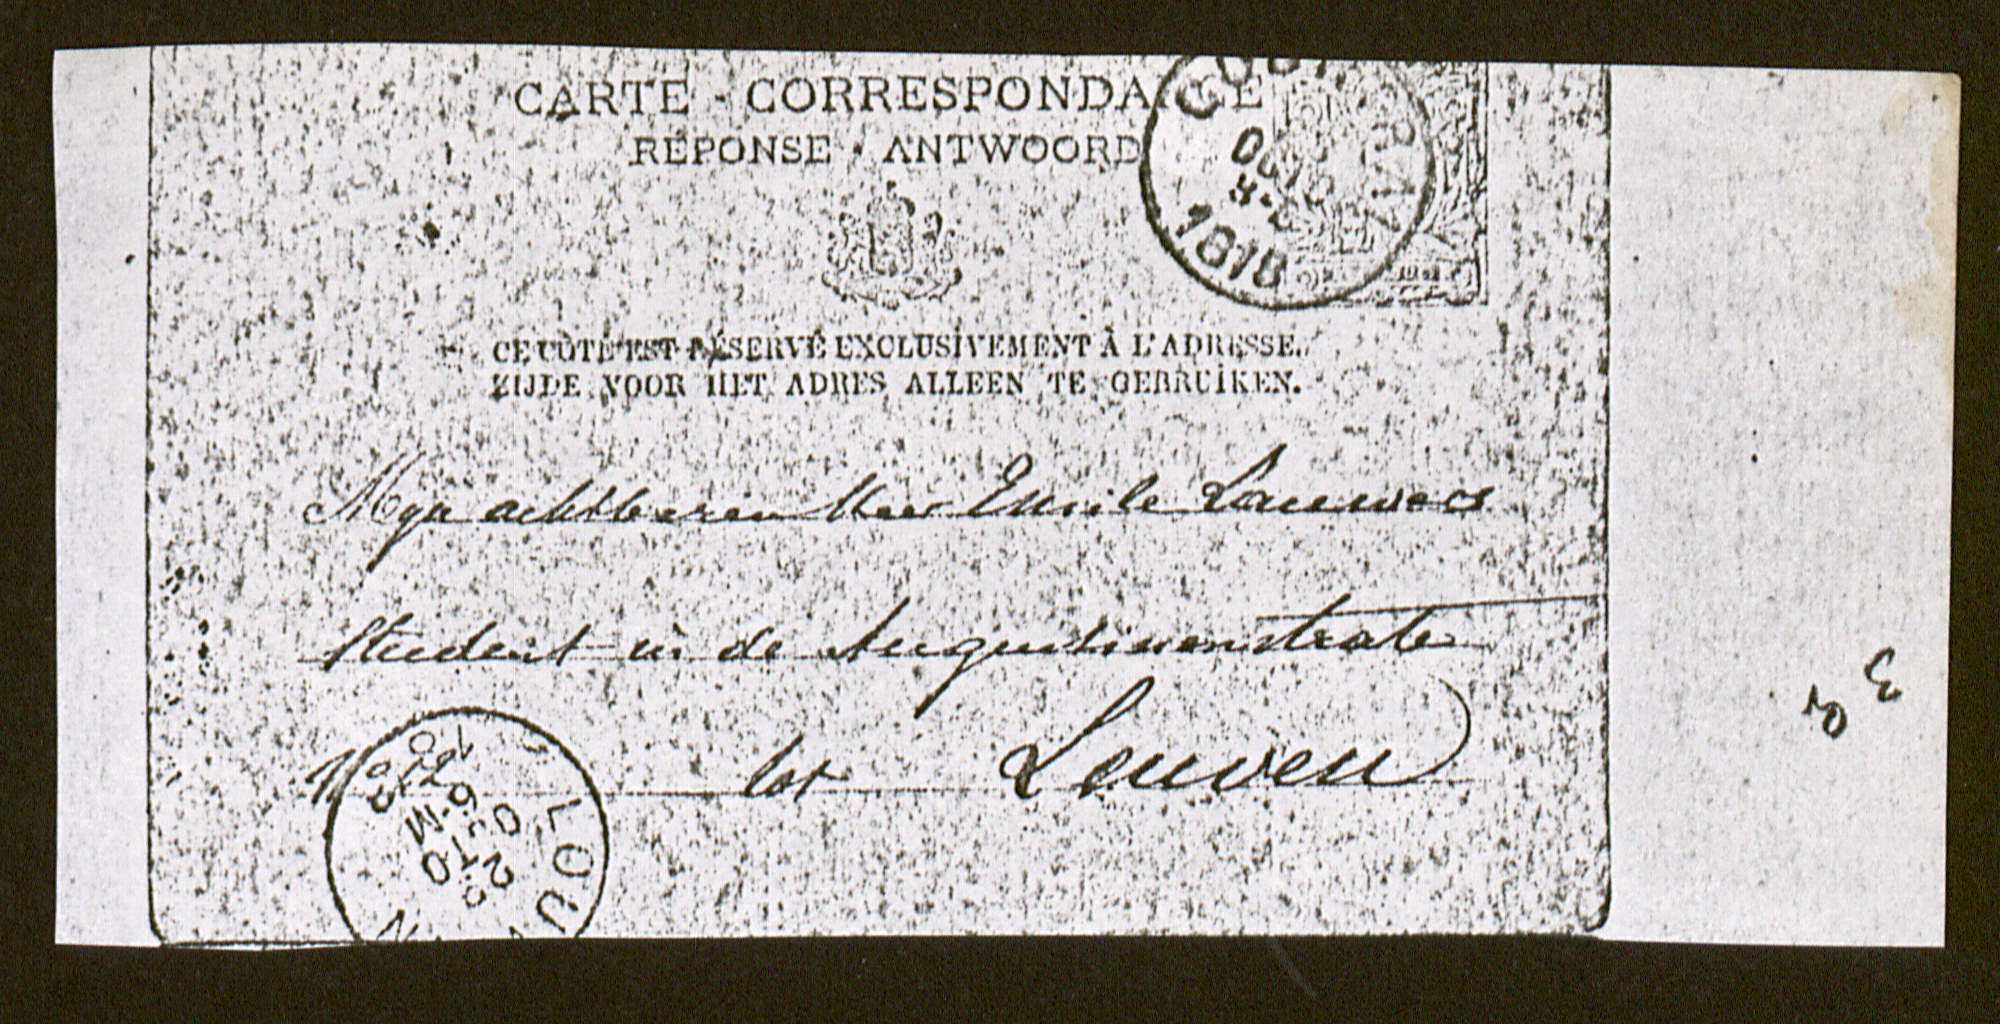 CARTE - CORRESPONDANCE
RÉPONSE ANTWOORD
1878
CE CÔTÉ EST RÉSERVÉ EXCLUSIVEMENT À L'ADRESSE.
ZIJDE VOOR HET ADRES ALLEEN TE GEBRUIKEN.
Mijn achtbaren Heer Emile Lauwers
Student in de Augustinenstrate
tot Leuven
LOUV N